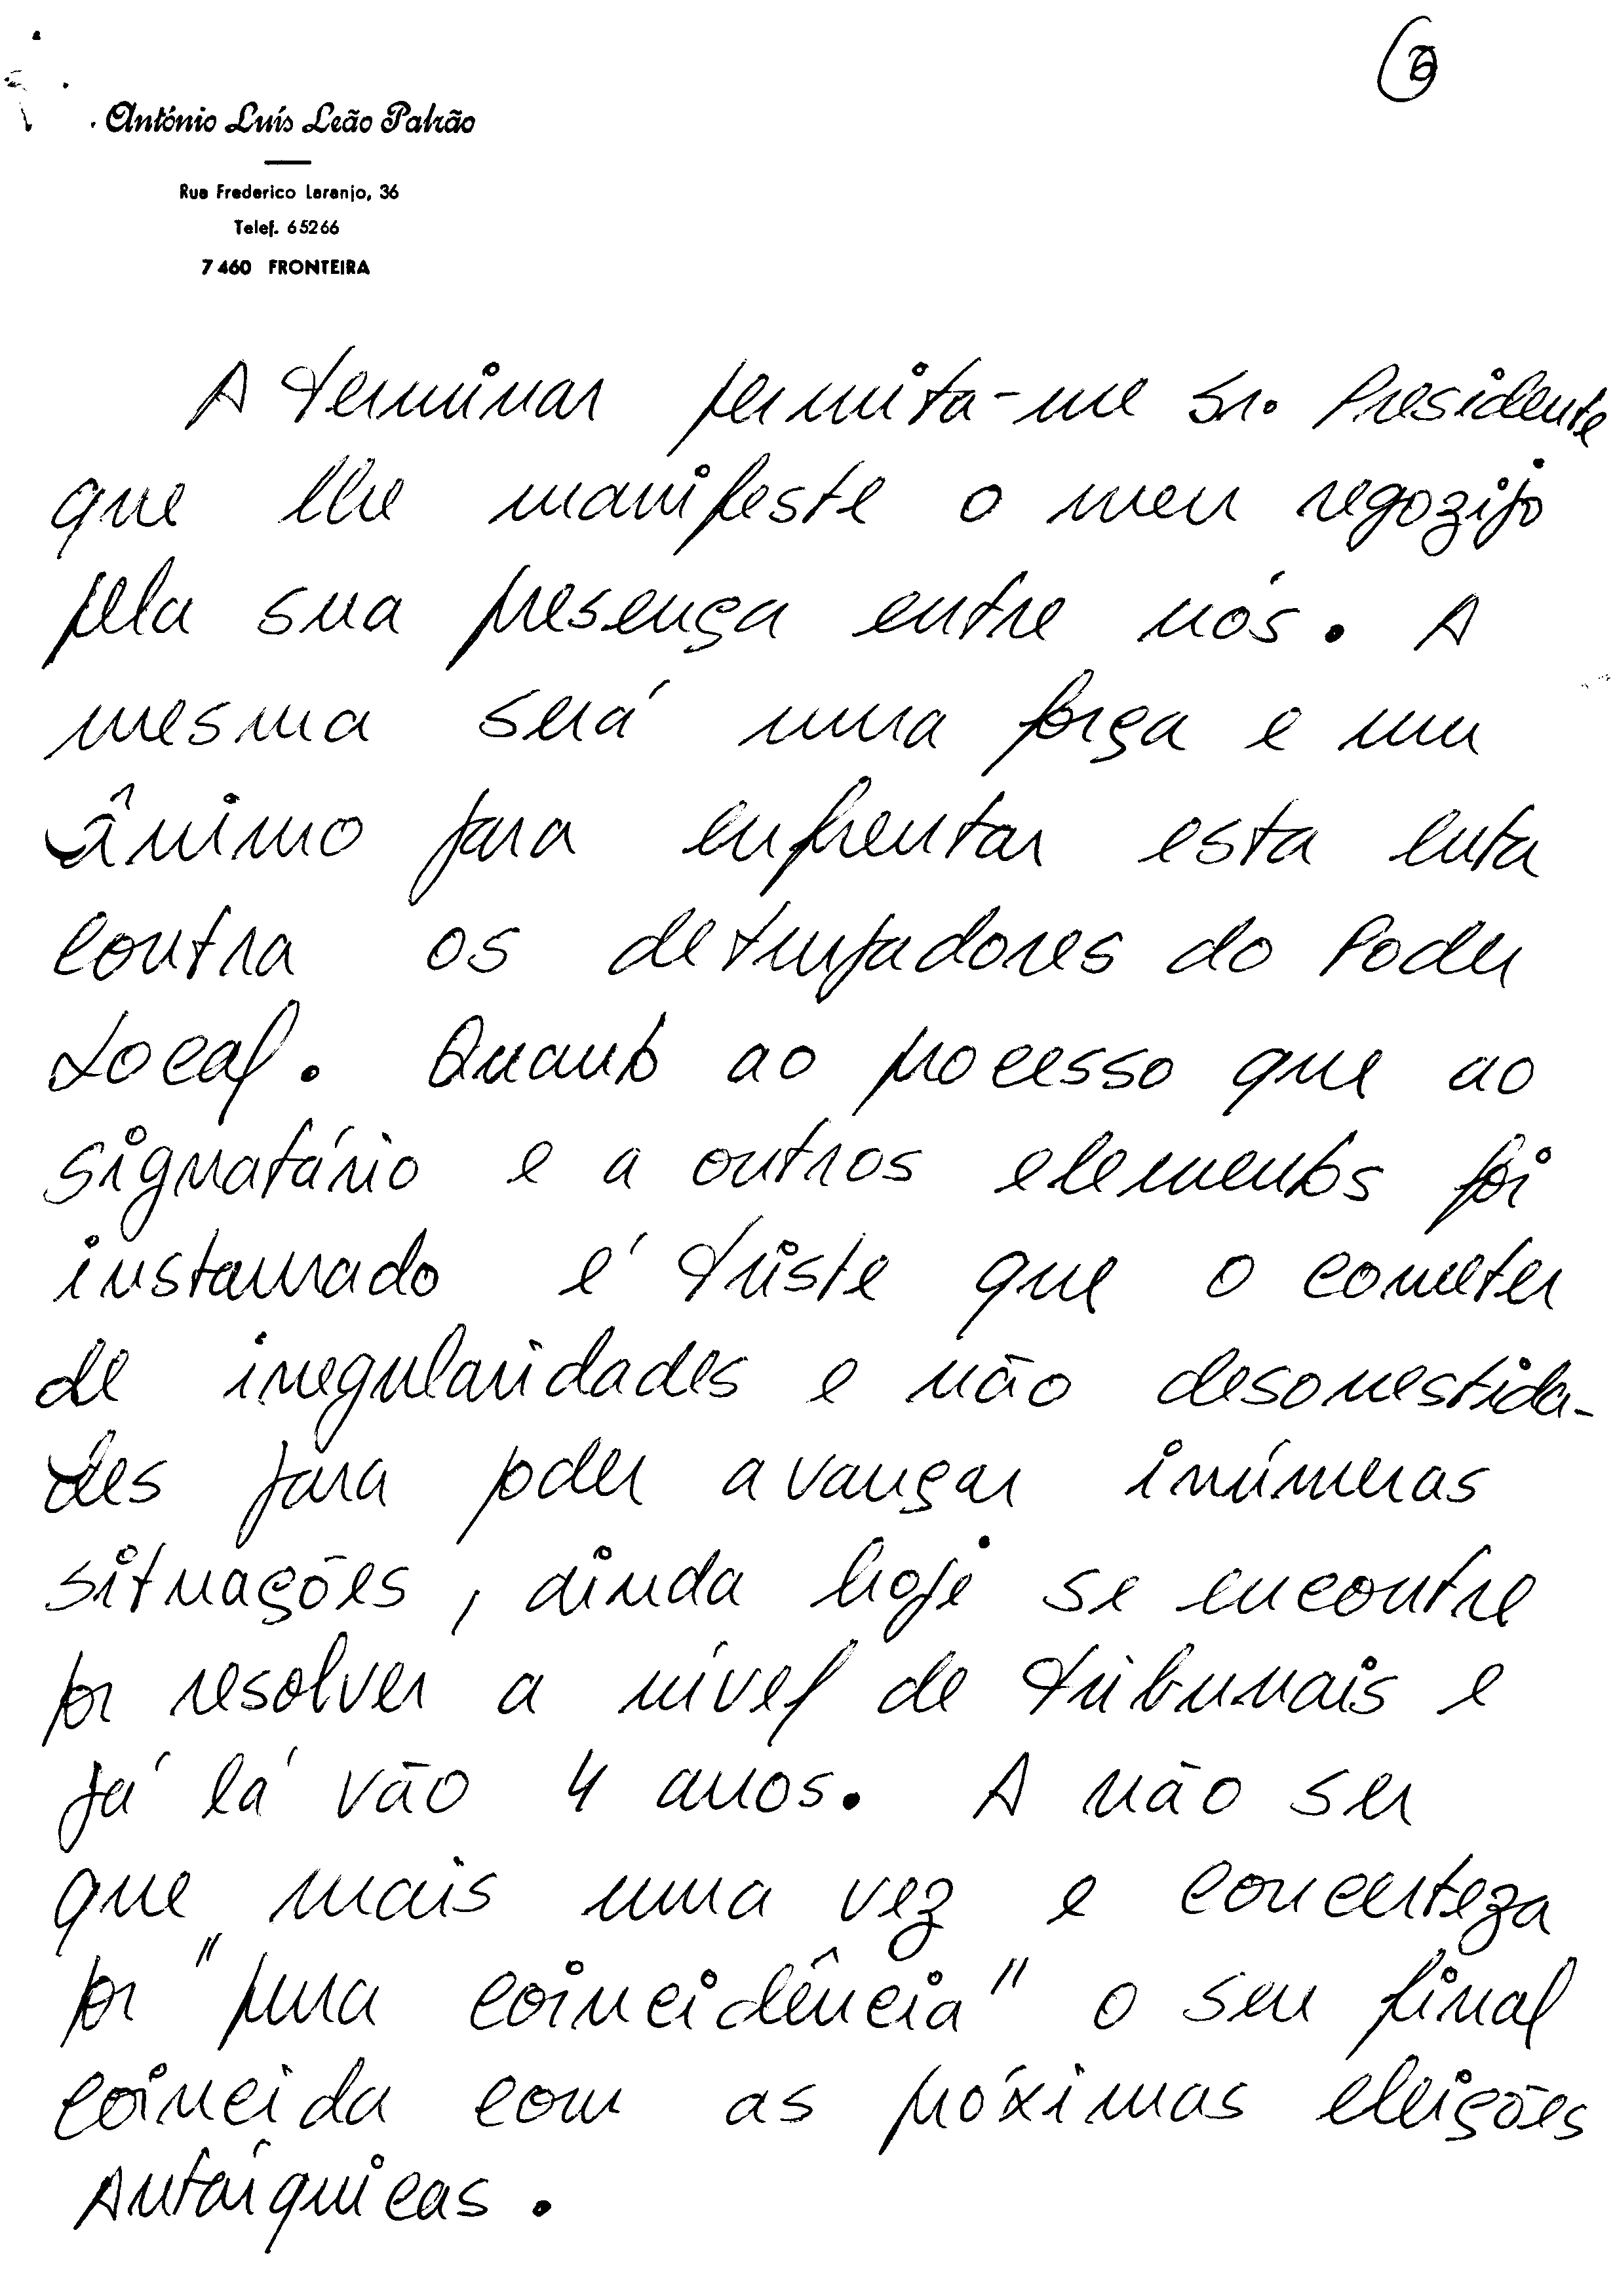 António Luís Leão Patrão
Rua Frederico Laranjo, 36
Telef. 65266
7460 FRONTEIRA
A terminar permita-me Sr. Presidente
que lhe manifeste o meu regozijo
pela sua presença entre nós. A
mesma será uma força e um
ânimo para enfrentar esta luta
contra os deturpadores do Poder
Local. Quanto ao processo que ao
signatário e a outros elementos foi
instaurado é triste que o cometer
de irregularidades e não desonestida-
des para poder avançar inúmeras
situações, ainda hoje se encontre
por resolver a nível de tribunais e
já lá vão 4 anos. A não ser
que mais uma vez e concerteza
por "pura coincidência" o seu final
coincida com as próximas eleições
Autárquicas.